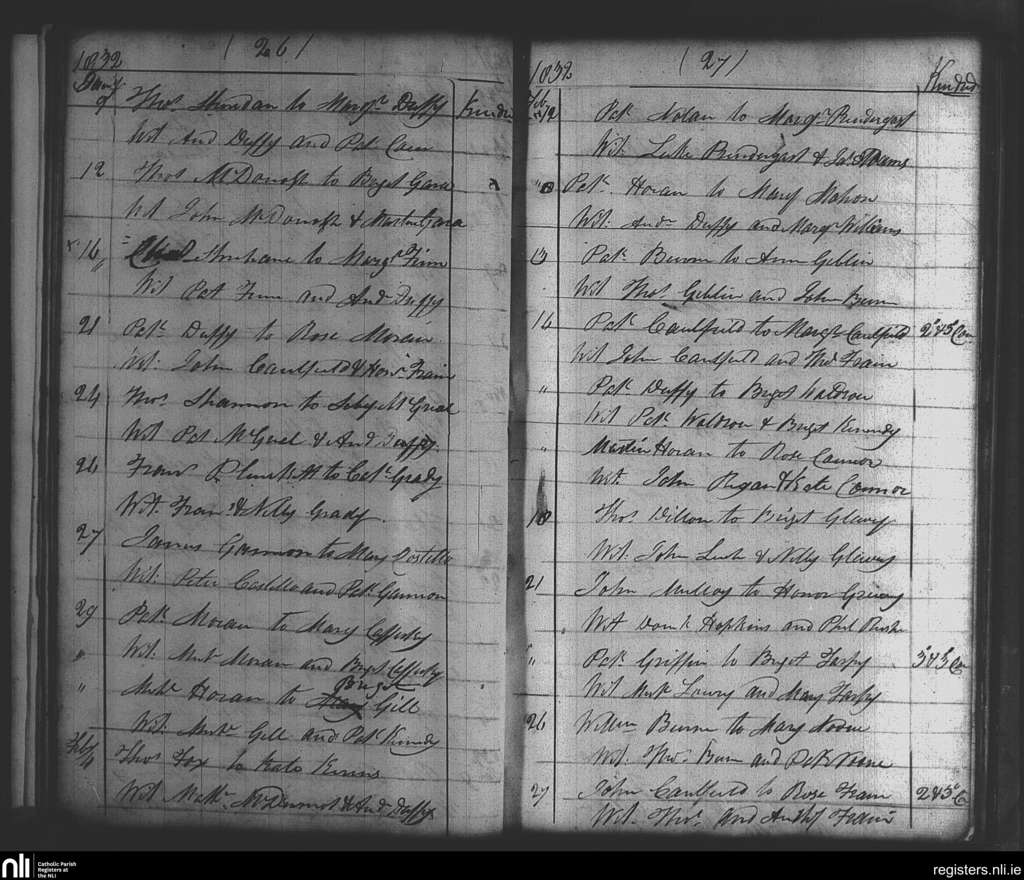 1832 (26)
Jany 9 Thos Sheridan to Margt Duffy Kindrd
Wit And Duffy and Pat Cain
12 Thos McDonagh to Briget Gara
Wit John McDonagh & Gara
16 to Margt Finn
Wit Pat Finn and Andw Duffy
21 Patk Duffy to Rose Moran
Wit: John Caulfield & Honr Frain
24 Thos Shannon to McGreal
Wit Pat McGreal & And Duffy
26 Frans Plunkett to Cath Grady
Wit. Fran & Nelly Grady.
27 James Gannon to Mary Costello
Wit: Peter Costello and Patk Gannon
29 Patk Moran to Mary Cafferky
" Wit. Moran and Briget Cafferky
Briget
" Michl Horan to Gill
Wit. Gill and Patk Kennedy
Feb/1 Thos Fox to Kate
Wit McDermot & Andw Duffy
1832 (27) Kindrd
Feb 12 Patk Nolan to Margt Prendergast
Wit. Luke Prendergast & Jas
" Patk Horan to Mary Mahon
Wit: Andw Duffy and Margt Williams
13 Patk Burn to Ann Giblin
Wit Thos Giblin and John Burn
14 Patk Caulfield to Margt Caulfield 2d & 3d Con
Wit John Caulfield and Thos Frain
" Patk Duffy to Briget Waldron
Wit Patk Waldron & Briget Kennedy
" Martin Horan to Rose Connor
Wit. John Regan & Kate Connor
18 Thos Dillon to Briget Glavy
Wit. John & Nelly Glavey
21 John Mulloy to Honor
Wit Domk Hopkins and Phil
" Patk Griffin to Briget Tarpy 3d & 3d Con
Wit Michl Lowry and Mary Tarpy
26 Willm Burn to Mary Noone
Wit. Thos. Burn and Patk Noone
27 John Caulfield to Rose Frain 2 & 3d C
Wit. Thos. and Anthy Frain
nli Catholic Parish
Registers at
the NLI
registers.nli.ie